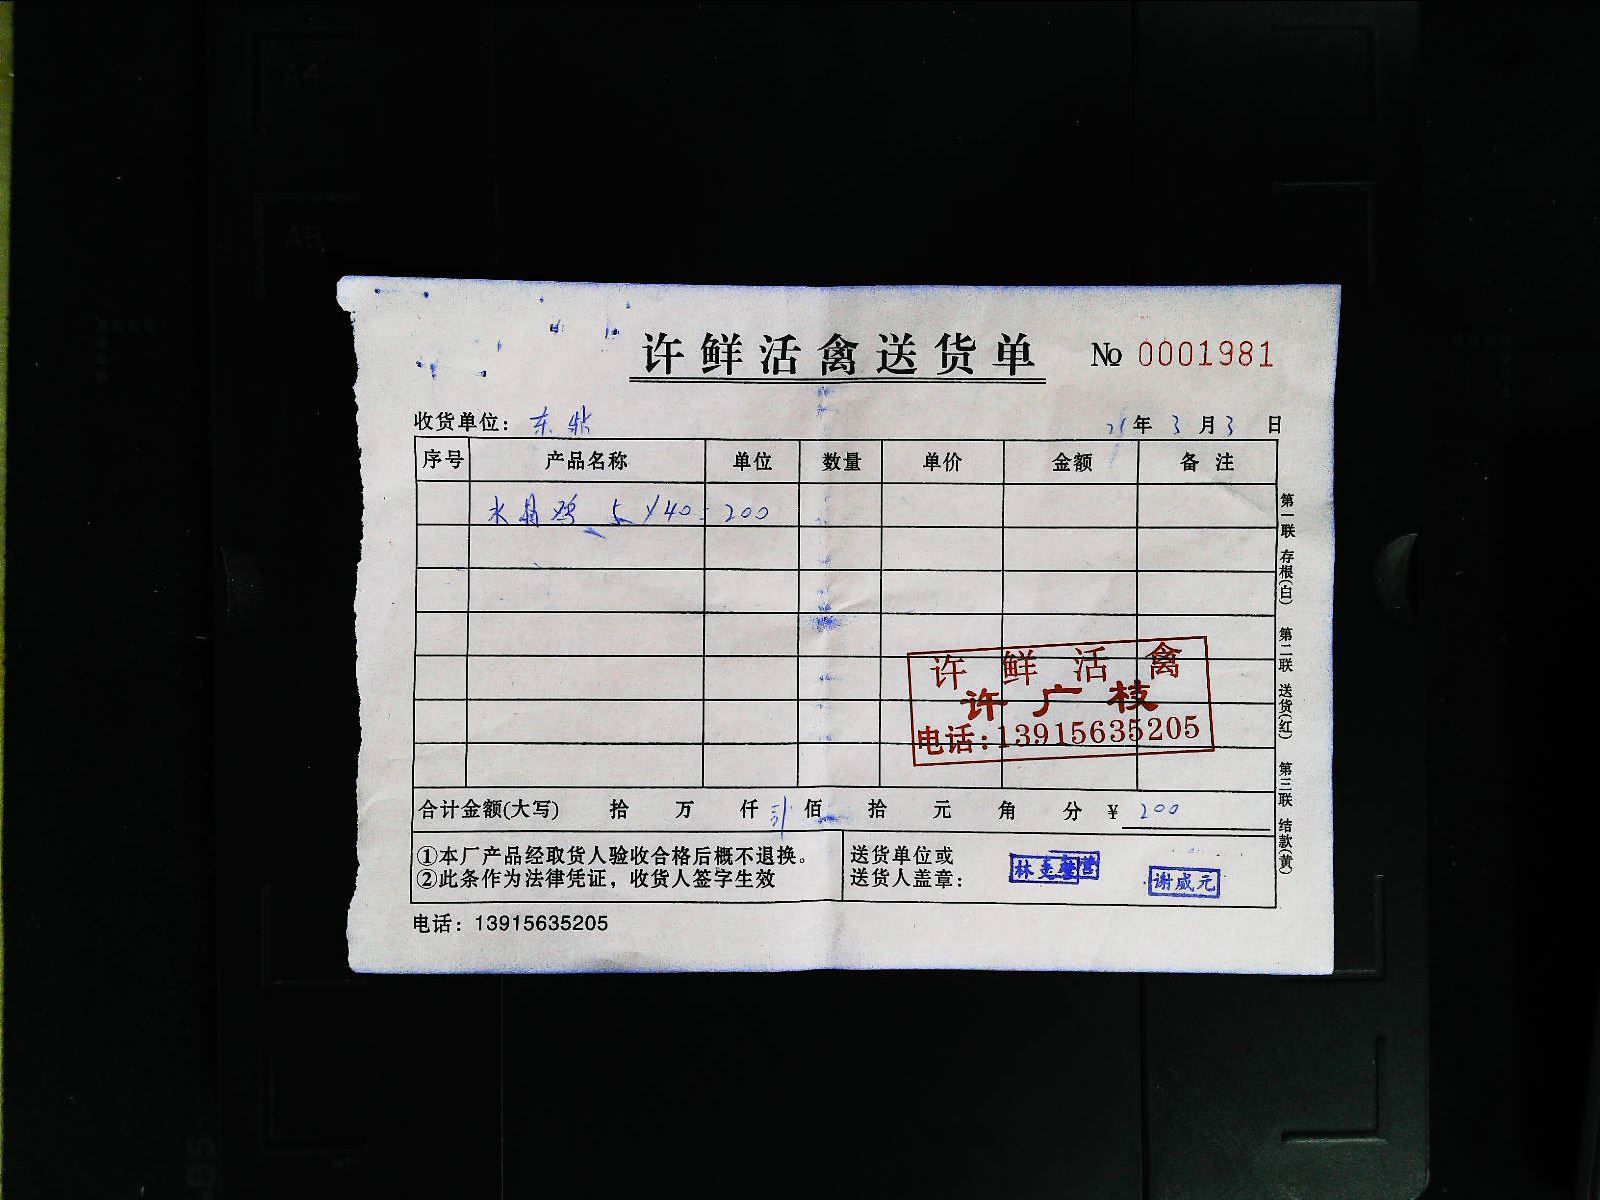 许鲜活禽送货单 № 0001981
收货单位：东鼎 21年3月3日
序号 产品名称 单位 数量 单价 金额 备注
水晶鸡 5×40=200
许鲜活禽
许广枝
电话:13915635205
合计金额(大写) 拾 万 仟 佰 拾 元 角 分 ¥ 200
①本厂产品经取货人验收合格后概不退换。
②此条作为法律凭证，收货人签字生效
送货单位或
送货人盖章：
谢威元
电话：13915635205
第一联 存根(白) 第二联 送货(红) 第三联 结款(黄)
A4
A5
B5